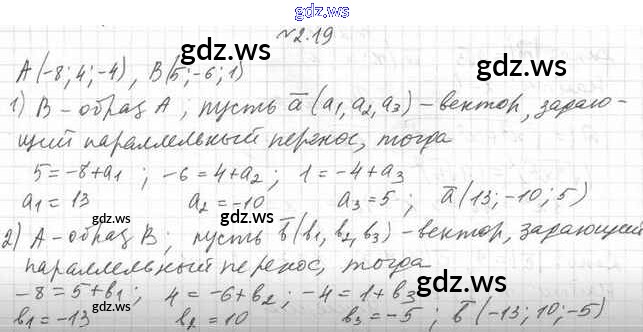 gdz.ws
№2.19
gdz.ws gdz.ws
A(-8; 4; -4), B(5; -6; 1)
1) B – образ A; пусть a̅ (a₁, a₂, a₃) – вектор, задаю-
щий параллельный перенос, тогда
5 = -8 + a₁ ; -6 = 4 + a₂ ; 1 = -4 + a₃
a₁ = 13 a₂ = -10 a₃ = 5 ; a̅ (13; -10; 5)
gdz.ws gdz.ws
2) A – образ B; пусть b̅ (b₁, b₂, b₃) – вектор, задающий
параллельный перенос, тогда
-8 = 5 + b₁ ; 4 = -6 + b₂ ; -4 = 1 + b₃
b₁ = -13 b₂ = 10 b₃ = -5 ; b̅ (-13; 10; -5)
gdz.ws gdz.ws
gdz.ws